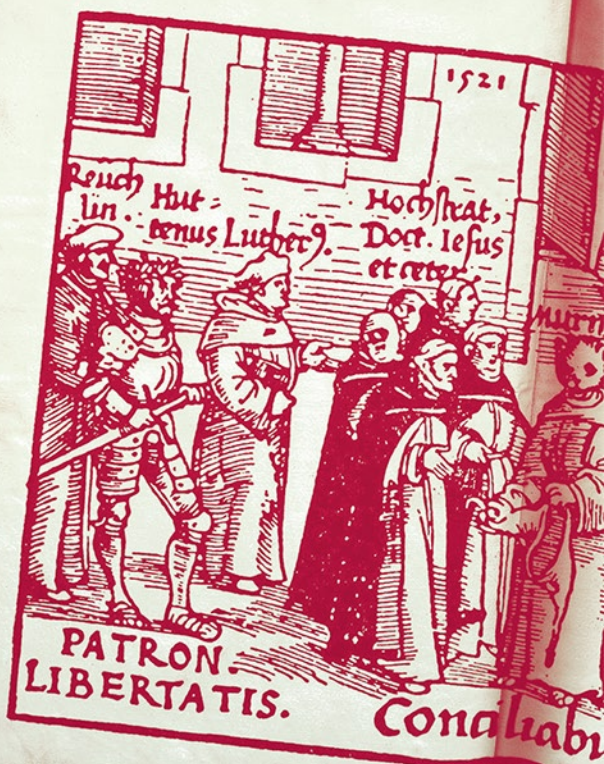 1521
Reuch
lin.
Hut=
tenus Luther9.
Hochstrat,
Doct. Iesus
et ceter
Murn
PATRON.
LIBERTATIS.
Conciliabu